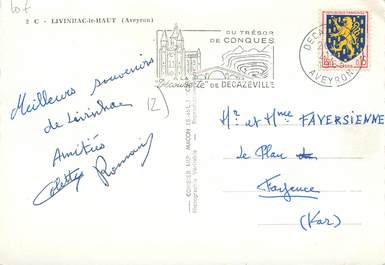 lot
2 C - LIVINHAC-le-HAUT (Aveyron)
DU TRÉSOR
DE CONQUES
Découverte
DE DECAZEVILLE
DECAZ
AVEYRON
Meilleurs souvenirs
de Livinhac
12
Amitiés
Colette Romain
COMBIER IMP. MACON
Photographie Véritable
Mr et Mme FAVERSIENNE
Le Plan de
Fayence
(Var)